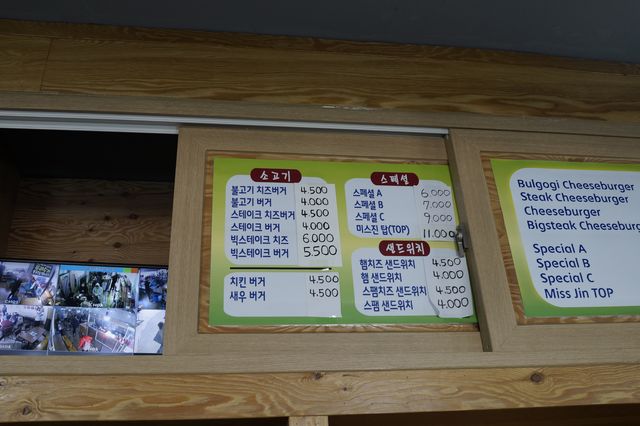 소고기
불고기 치즈버거 4.500
불고기 버거 4.000
스테이크 치즈버거 4.500
스테이크 버거 4.000
빅스테이크 치즈 6.000
빅스테이크 버거 5.500
치킨 버거 4.500
새우 버거 4.500
스페셜
스페셜 A 6.000
스페셜 B 7.000
스페셜 C 9,000
미스진 탑(TOP) 11.000
샌드위치
햄치즈 샌드위치 4.500
햄 샌드위치 4.000
스팸치즈 샌드위치 4.500
스팸 샌드위치 4.000
Bulgogi Cheeseburger
Steak Cheeseburger
Cheeseburger
Bigsteak Cheeseburg
Special A
Special B
Special C
Miss Jin TOP